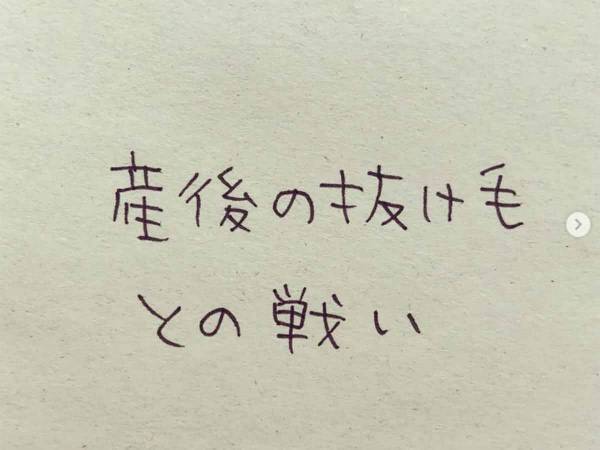 産後の抜け毛
との戦い